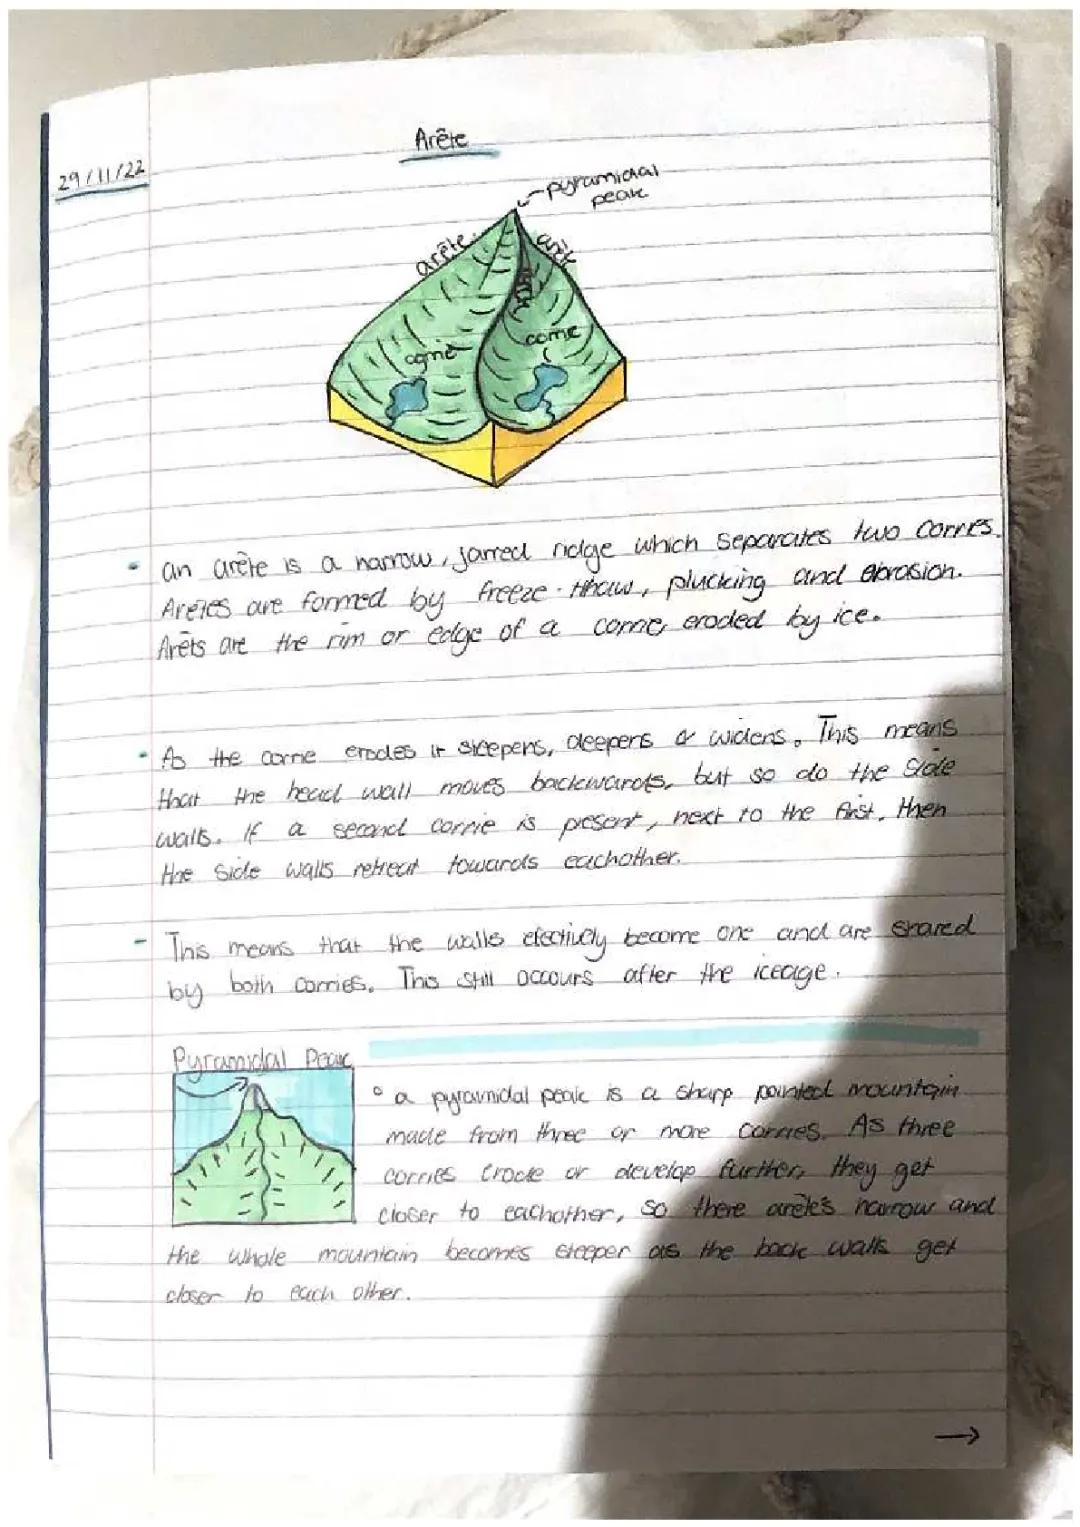 Arête
29/11/22
pyramidal
peak
arête
arêt
corrie
corrie
an arête is a narrow, jarred ridge which separates two corries.
Aretes are formed by freeze-thaw, plucking and abrasion.
Arêts are the rim or edge of a corrie eroded by ice.
As the corrie erodes it steepens, deepens & widens. This means
that the head wall moves backwards, but so do the side
walls. If a second corrie is present, next to the first, then
the side walls retreat towards eachother.
This means that the walls efectively become one and are shared
by both corries. This still occurs after the iceage.
Pyramidal Peak
a pyramidal peak is a sharp pointed mountain
made from three or more corries. As three
corries erode or develop further, they get
closer to eachother, so there arête's narrow and
the whole mountain becomes steeper as the back walls get
closer to each other.